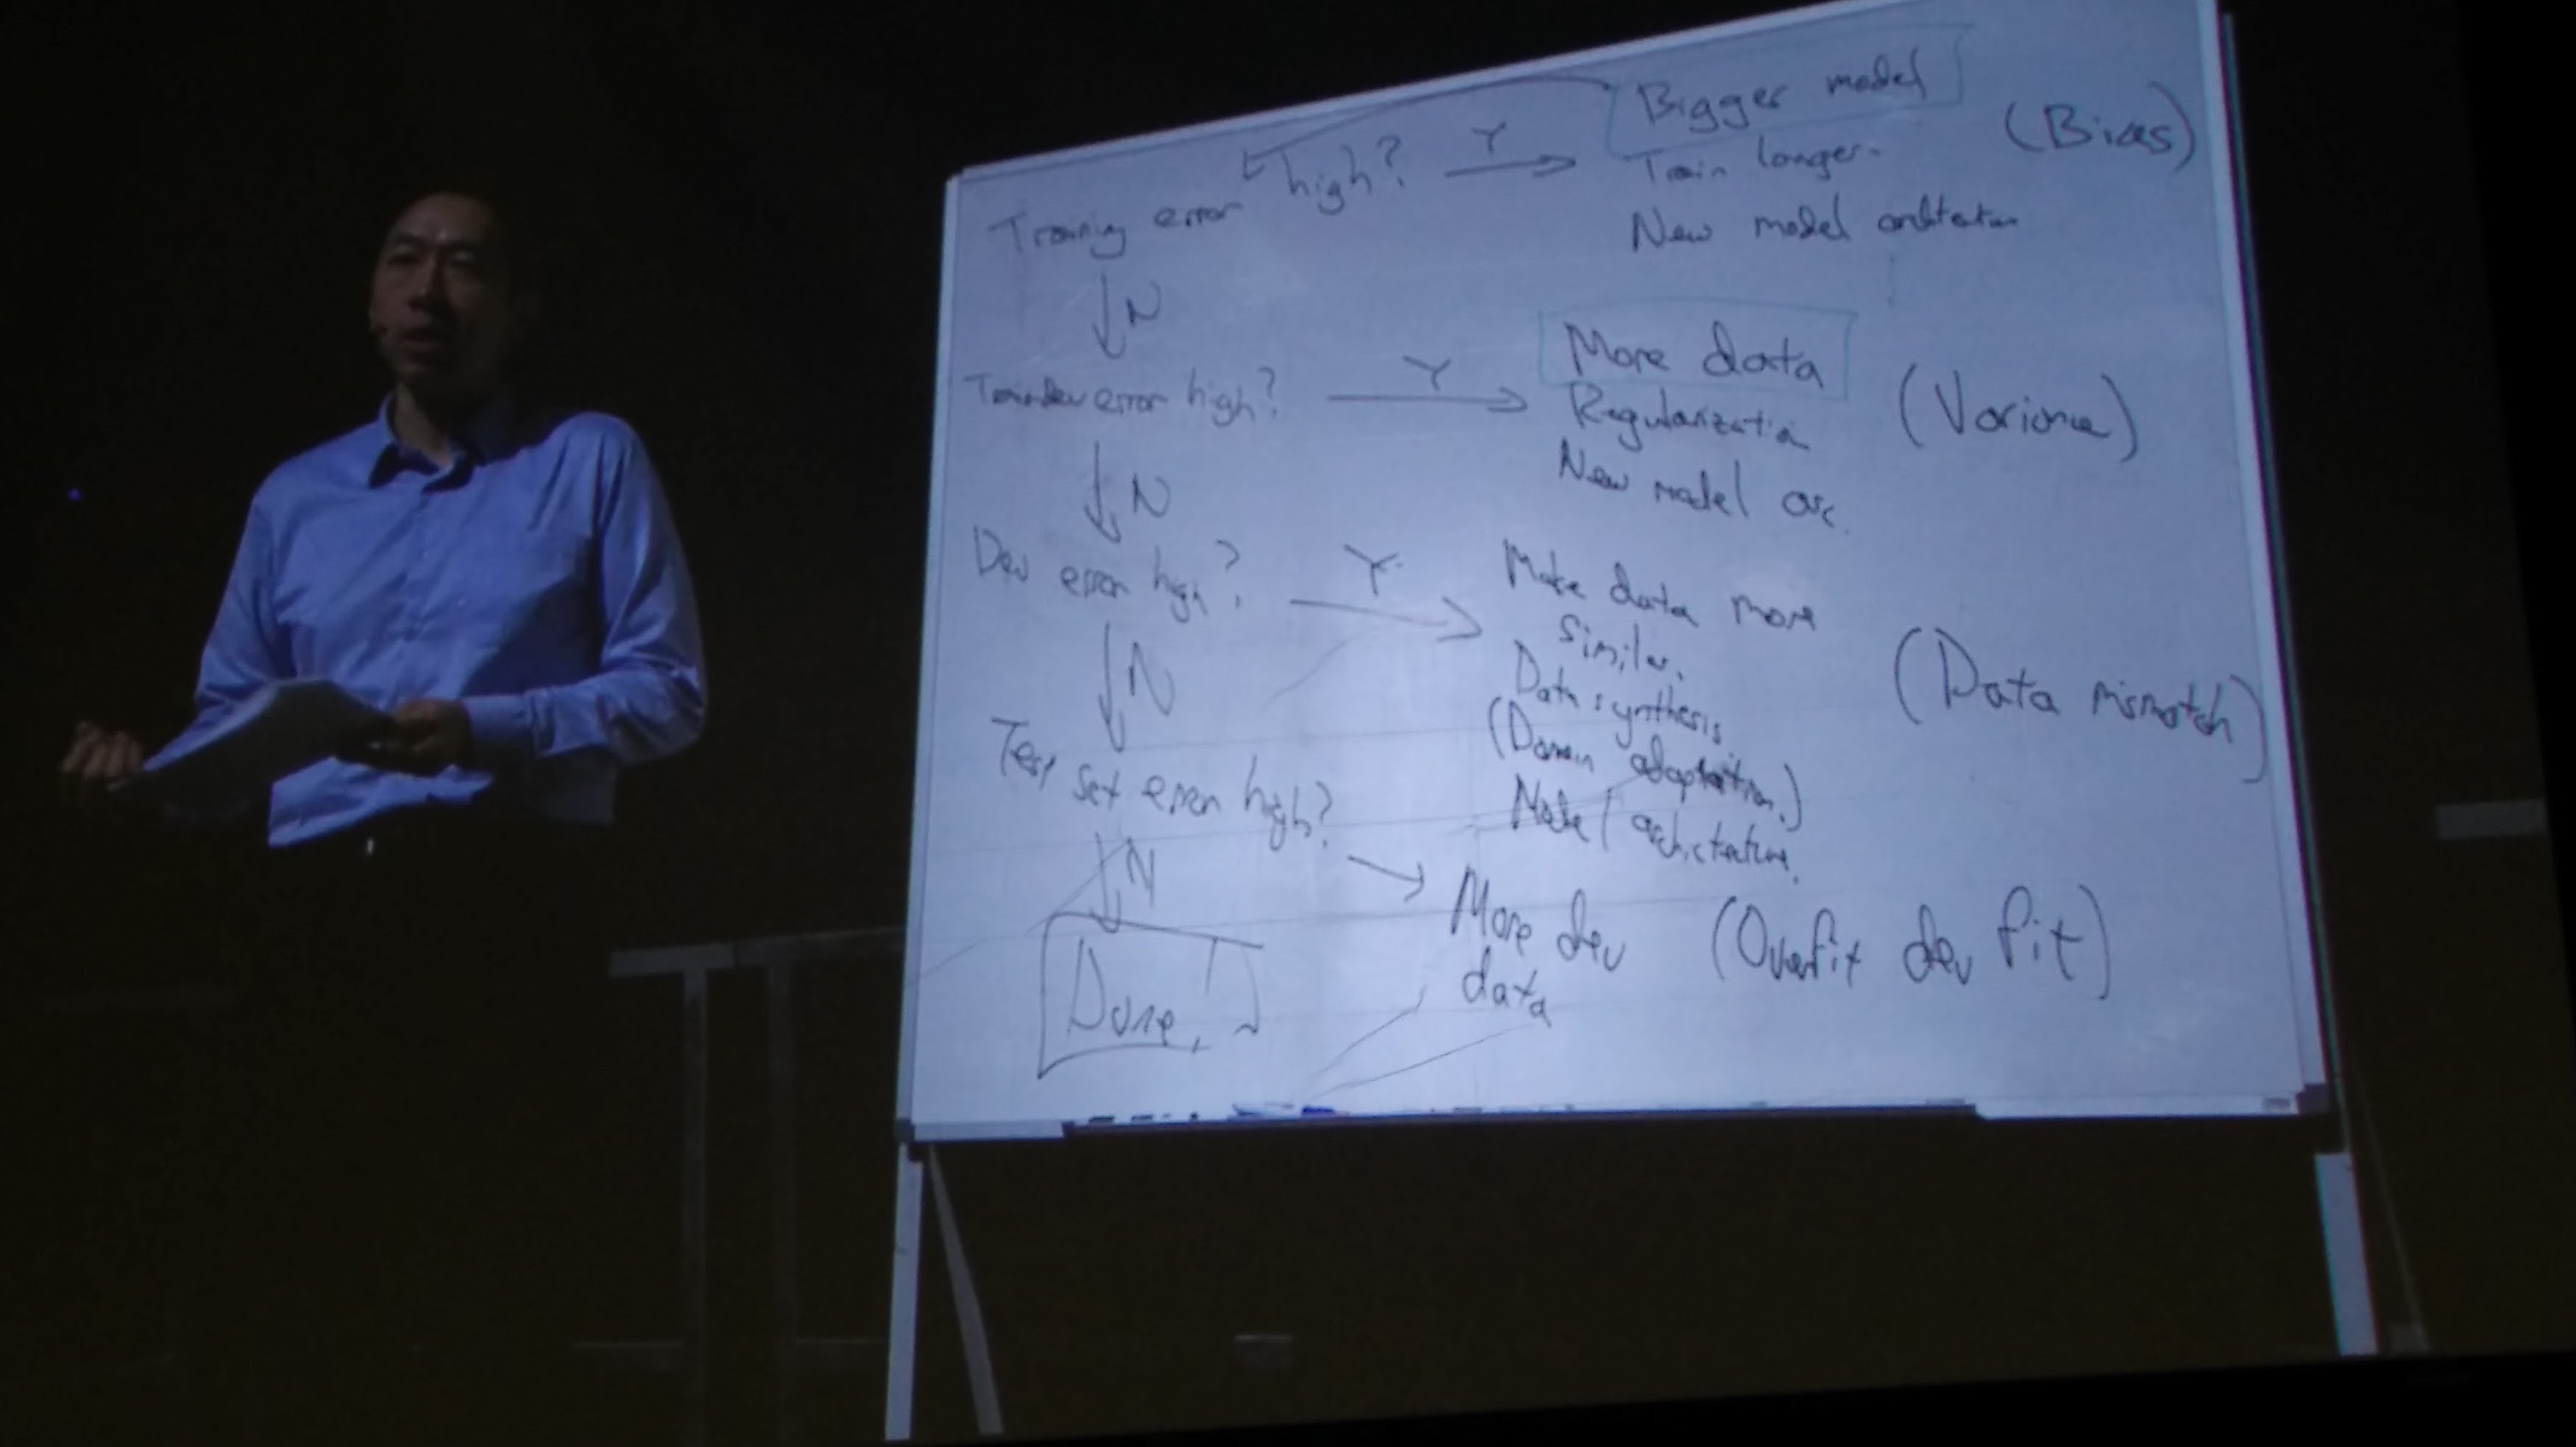 Bigger model
Training error high? Y Train longer. (Bias)
New model architecture
N
More data
Train-dev error high? Y Regularization (Variance)
New model arc.
N
Dev error high? Y Make data more
similar.
Data synthesis (Data mismatch)
(Domain adaptation.)
N architecture.
Test set error high?
N More dev (Overfit dev fit)
data
Done.